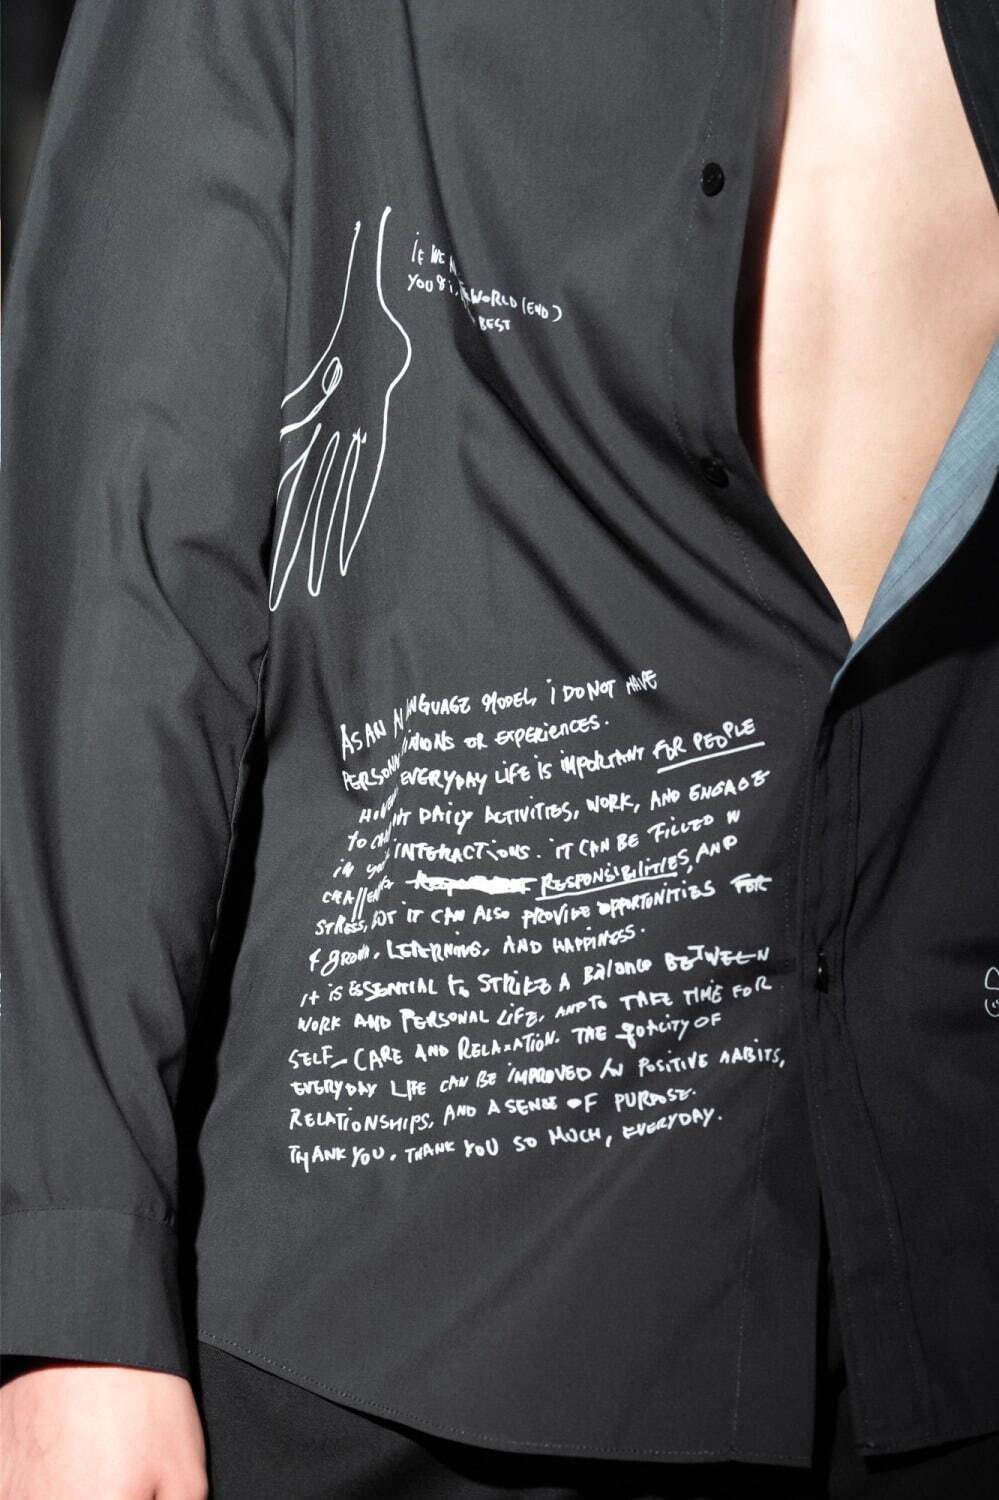 iF WE
YOU & i, WORLD (END)
BEST
AS AN LANGUAGE MODEL, i DO NOT HAVE
PERSONAL OPINIONS OR EXPERIENCES.
HOWEVER EVERYDAY LIFE IS IMPORTANT FOR PEOPLE
TO DAILY ACTIVITIES, WORK, AND ENGAGE
iN INTERACTIONS. IT CAN BE FILLED W
CHALLENGES RESPONSIBILITIES, AND
STRESS, BUT IT CAN ALSO PROVIDE OPPORTUNITIES FOR
GROWN, LEARNING, AND HAPPINESS.
it iS ESSENTIAL to STRIKE A Balance BETWEEN
WORK AND PERSONAL LIFE, AND TO TAKE TIME FOR
SELF_CARE AND RELAXATION. THE QUALITY OF
EVERYDAY LIFE CAN BE IMPROVED IN POSITIVE HABITS,
RELATIONSHIPS, AND A SENSE OF PURPOSE.
THANK YOU, THANK YOU SO MUCH, EVERYDAY.